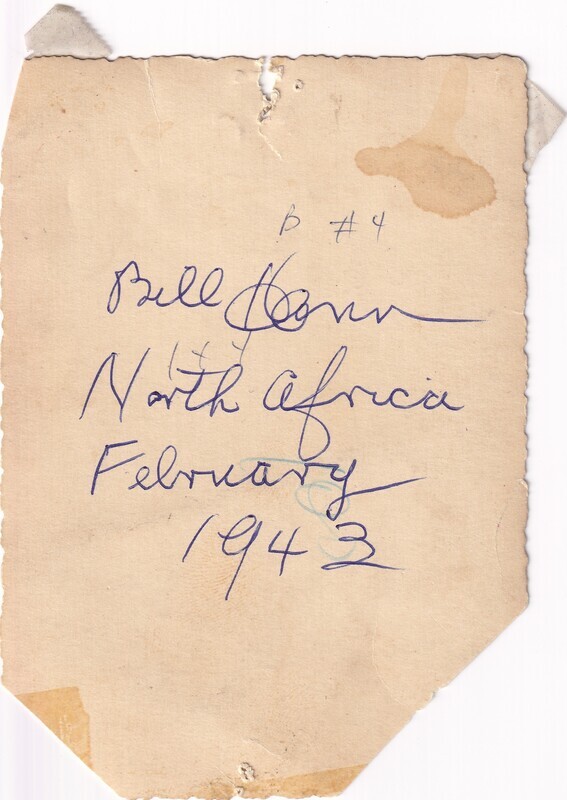 D #4
Bill Hann
North Africa
February
1943